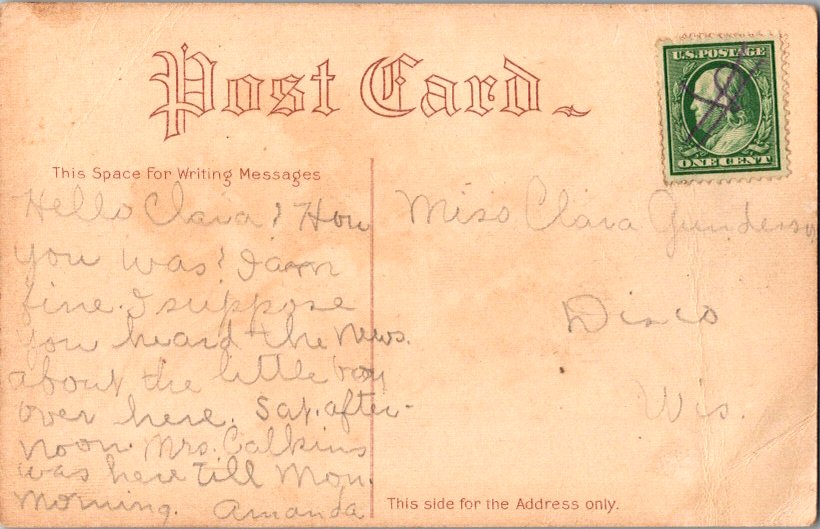 Post Card
U.S. POSTAGE
ONE CENT
This Space For Writing Messages
Hello Clara! How
you was? I am
fine. I suppose
you heard the news.
about the little boy
over here. Sat. after-
noon. Mrs. Calkins
was here till Mon.
morning. Amanda
Miss Clara Gunderson
Disco
Wis.
This side for the Address only.